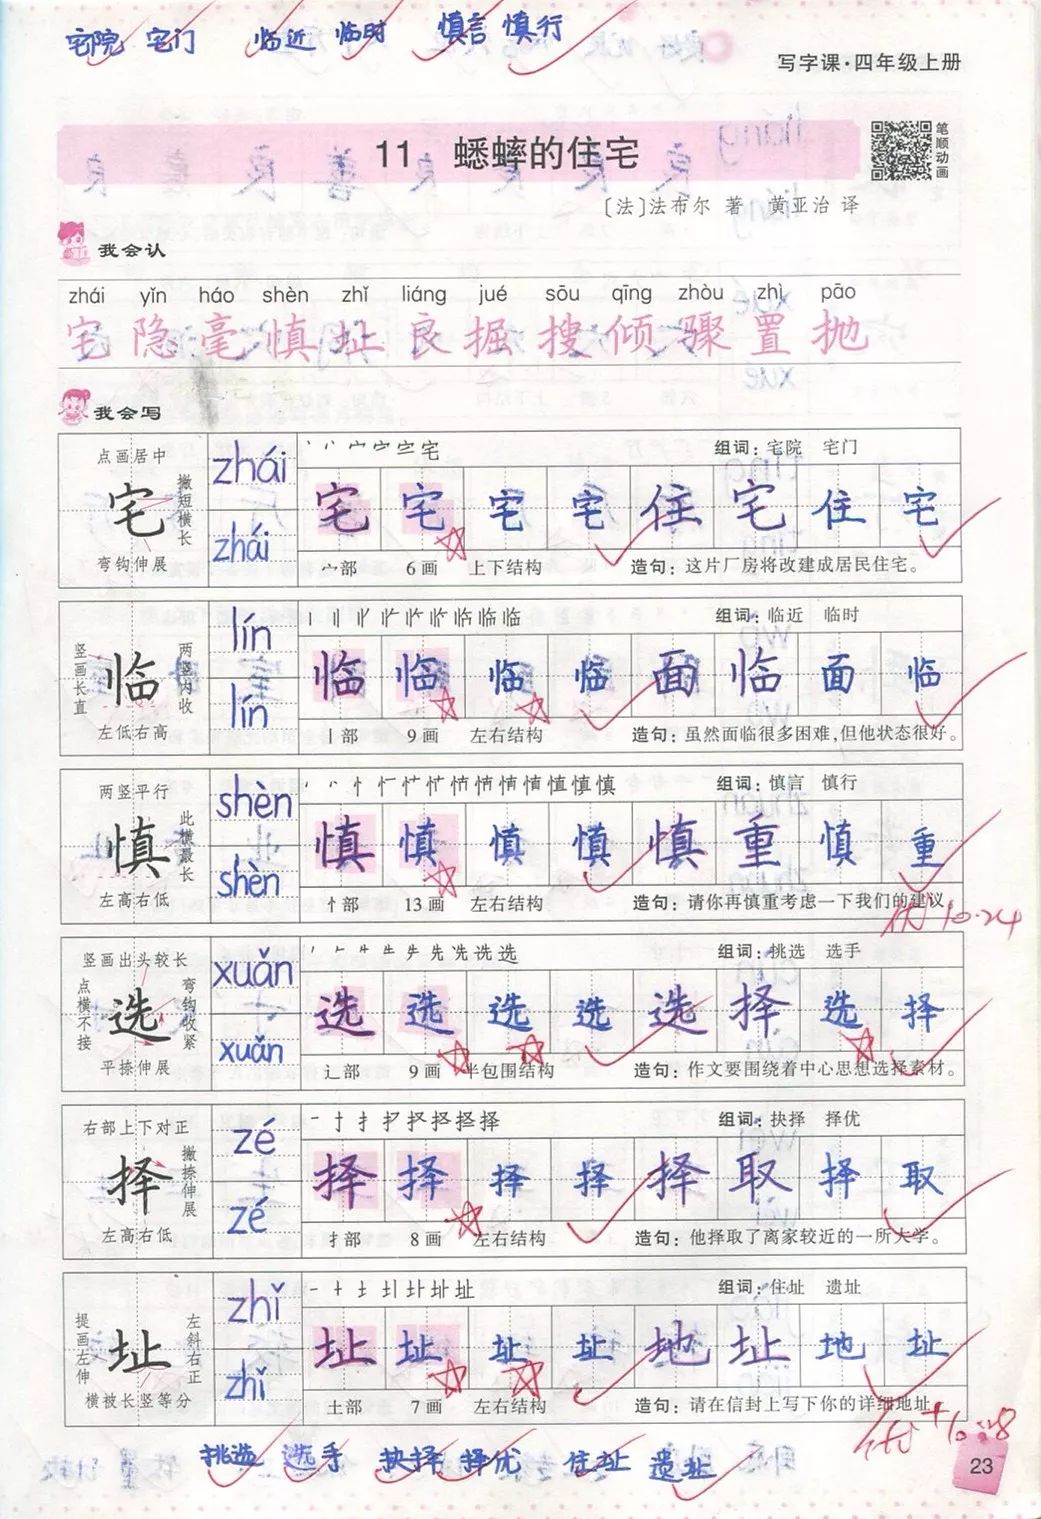 宅院 宅门 临近 临时 慎言 慎行
写字课·四年级上册
11 蟋蟀的住宅
笔顺动画
〔法〕法布尔 著 黄亚治 译
我会认
zhái yǐn háo shèn zhǐ liáng jué sōu qīng zhòu zhì pāo
宅 隐 毫 慎 址 良 掘 搜 倾 骤 置 抛
我会写
点画居中
宅
撇短横长
弯钩伸展
zhái
zhái
组词：宅院 宅门
宅 宅 宅 宅 住 宅 住 宅
宀部 6画 上下结构 造句：这片厂房将改建成居民住宅。
竖画长直
临
两竖内收
左低右高
lín
lín
组词：临近 临时
临 临 临 临 面 临 面 临
丨部 9画 左右结构 造句：虽然面临很多困难,但他状态很好。
两竖平行
慎
此横最长
左高右低
shèn
shèn
组词：慎言 慎行
慎 慎 慎 慎 慎 重 慎 重
忄部 13画 左右结构 造句：请你再慎重考虑一下我们的建议。
优 10.24
竖画出头较长
点横不接
选
弯钩收紧
平捺伸展
xuǎn
xuǎn
组词：挑选 选手
选 选 选 选 选 择 选 择
辶部 9画 半包围结构 造句：作文要围绕着中心思想选择素材。
右部上下对正
择
撇捺伸展
左高右低
zé
zé
组词：抉择 择优
择 择 择 择 择 取 择 取
扌部 8画 左右结构 造句：他择取了离家较近的一所大学。
提画左伸
址
左斜右正
横被长竖等分
zhǐ
zhǐ
组词：住址 遗址
址 址 址 址 地 址 地 址
土部 7画 左右结构 造句：请在信封上写下你的详细地址
挑选 选手 抉择 择优 住址 遗址
23